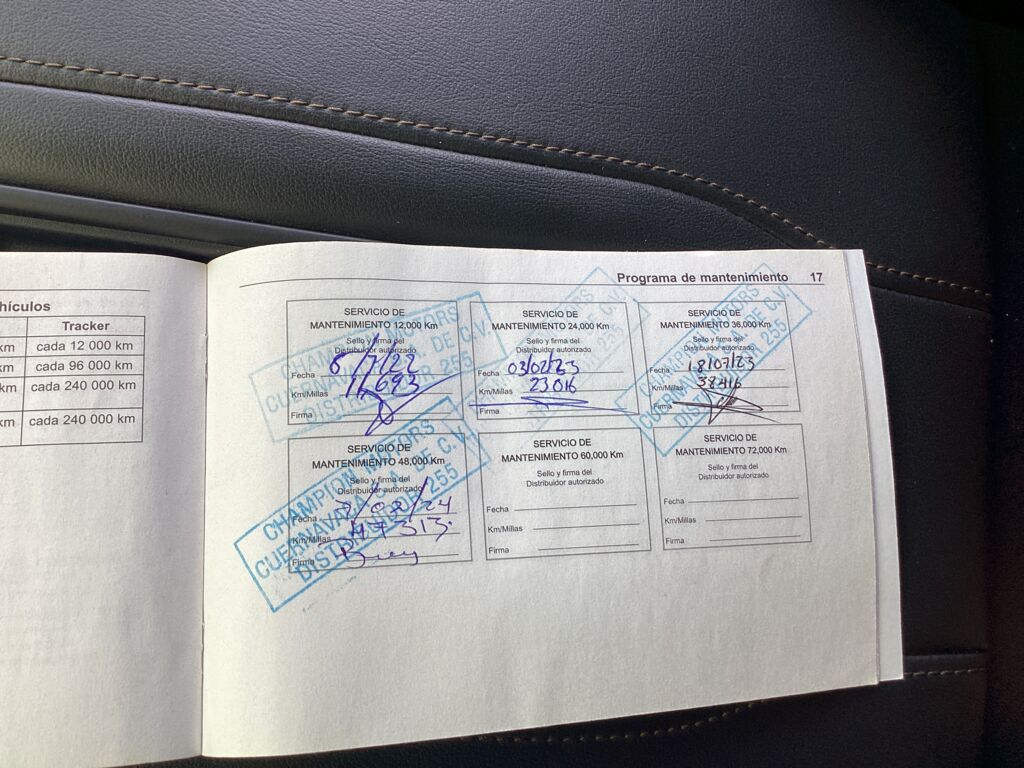 hículos
Tracker
km cada 12 000 km
km cada 96 000 km
km cada 240 000 km
km cada 240 000 km
Programa de mantenimiento 17
SERVICIO DE
MANTENIMIENTO 12,000 Km
Sello y firma del
Distribuidor autorizado
Fecha 6/7/22
Km/Millas 11,693
Firma
SERVICIO DE
MANTENIMIENTO 24,000 Km
Sello y firma del
Distribuidor autorizado
Fecha 03/02/23
Km/Millas 23016
Firma
SERVICIO DE
MANTENIMIENTO 36,000 Km
Sello y firma del
Distribuidor autorizado
Fecha 18/07/23
Km/Millas 38416
Firma
CHAMPION MOTORS
CUERNAVACA S.A. DE C.V.
DISTRIBUIDOR 255
SERVICIO DE
MANTENIMIENTO 48,000 Km
Sello y firma del
Distribuidor autorizado
Fecha /02/24
Km/Millas 47313
Firma
CHAMPION MOTORS
CUERNAVACA S.A. DE C.V.
DISTRIBUIDOR 255
SERVICIO DE
MANTENIMIENTO 60,000 Km
Sello y firma del
Distribuidor autorizado
Fecha
Km/Millas
Firma
SERVICIO DE
MANTENIMIENTO 72,000 Km
Sello y firma del
Distribuidor autorizado
Fecha
Km/Millas
Firma